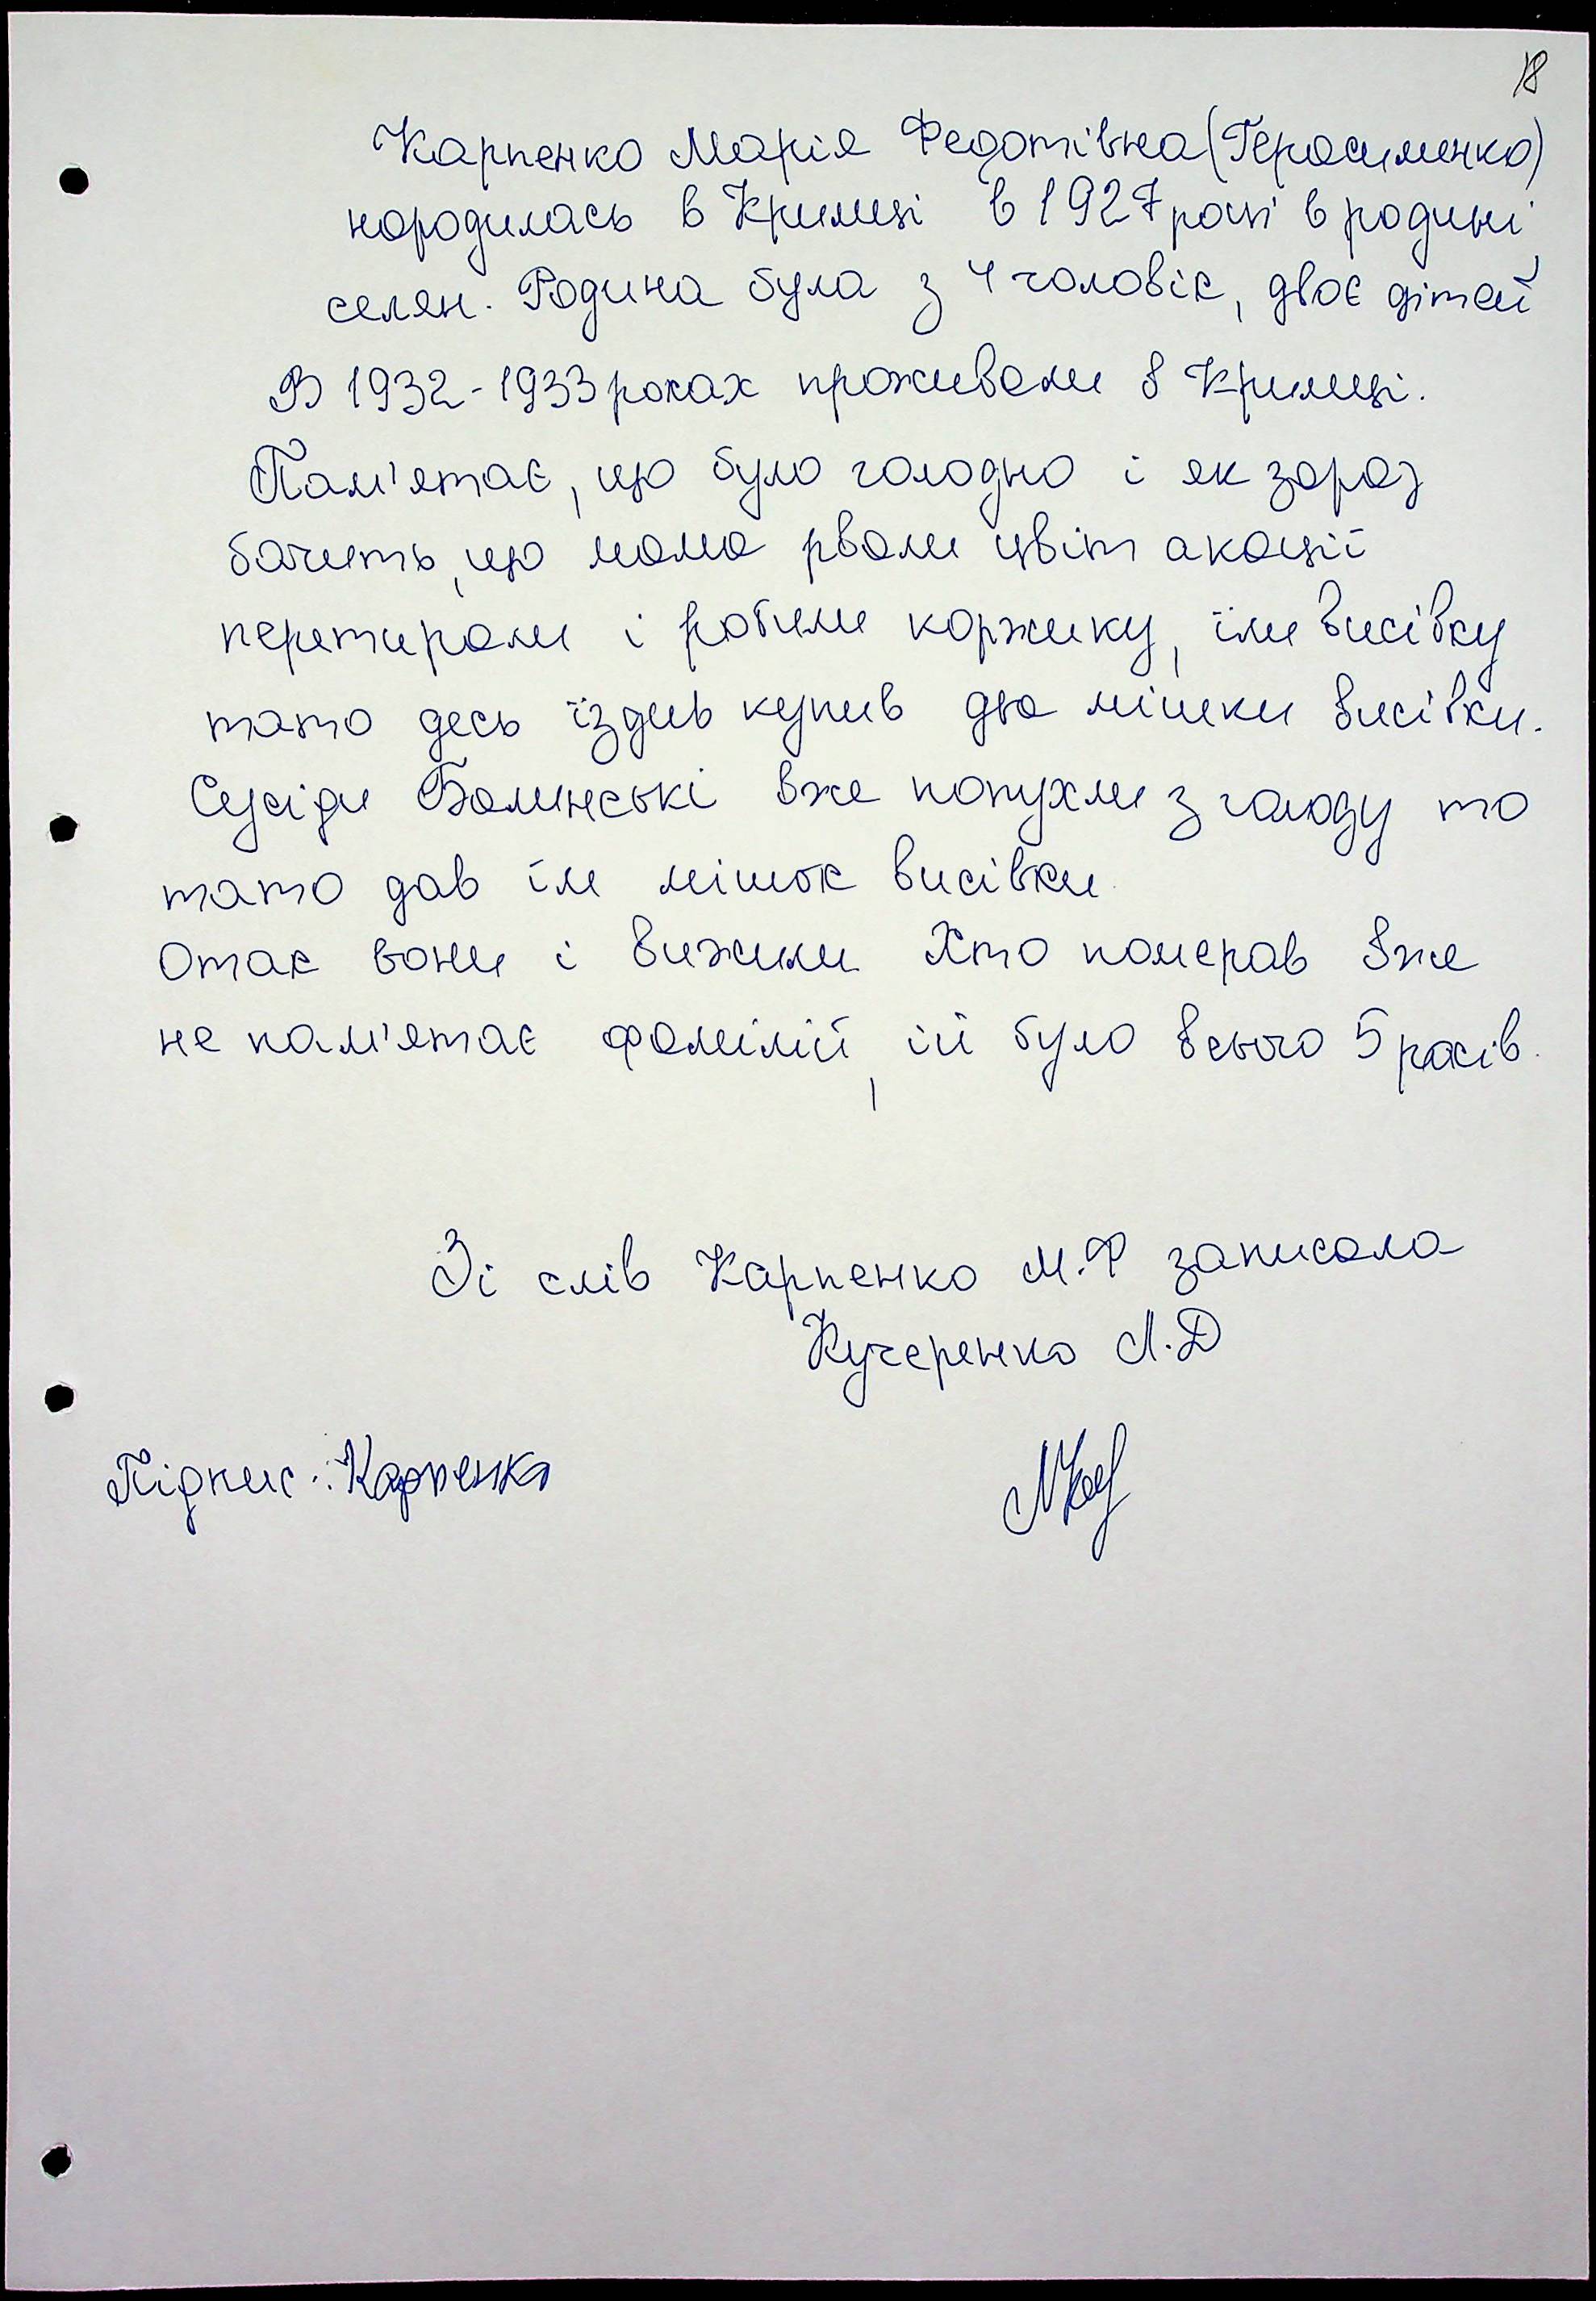 18
Карпенко Марія Федотівна (Герасименко)
народилась в Кримці в 1927 році в родині
селян. Родина була з 4 чоловік, двоє дітей
В 1932-1933 роках проживали в Кримці.
Пам'ятає, що було голодно і як зараз
бачить, що мама рвали цвіт акації
перетирали і робили коржику, їли висівку
тато десь їздив купив два мішки висівки.
Сусіди Балинські вже попухли з голоду то
тато дав їм мішок висівки
Отак вони і вижили Хто померав вже
не пам'ятає фамілій, їй було всього 5 років.
Зі слів Карпенко М.Ф записала
Кучеренко Л.Д
Підпис: Карпенко